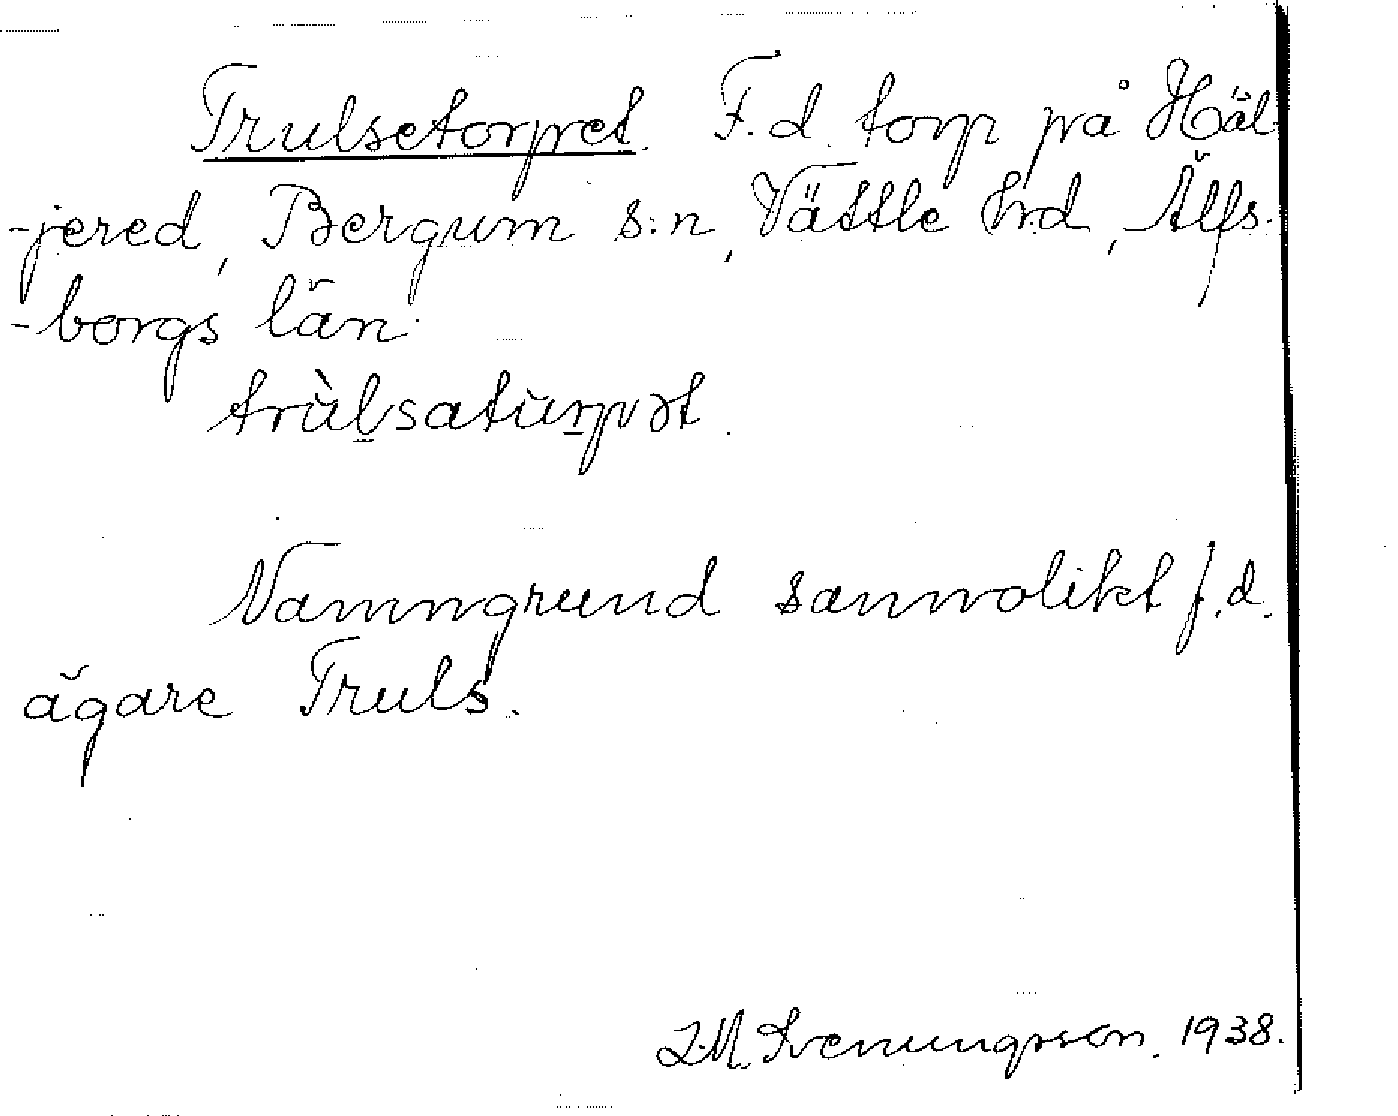 Trulsetorpet. F.d. torp på Häl-
-jered, Bergum s:n, Vättle hrd, Älfs-
-borgs län.
trùlsatùrpət.
Namngrund sannolikt f.d.
ägare Truls.
1938.